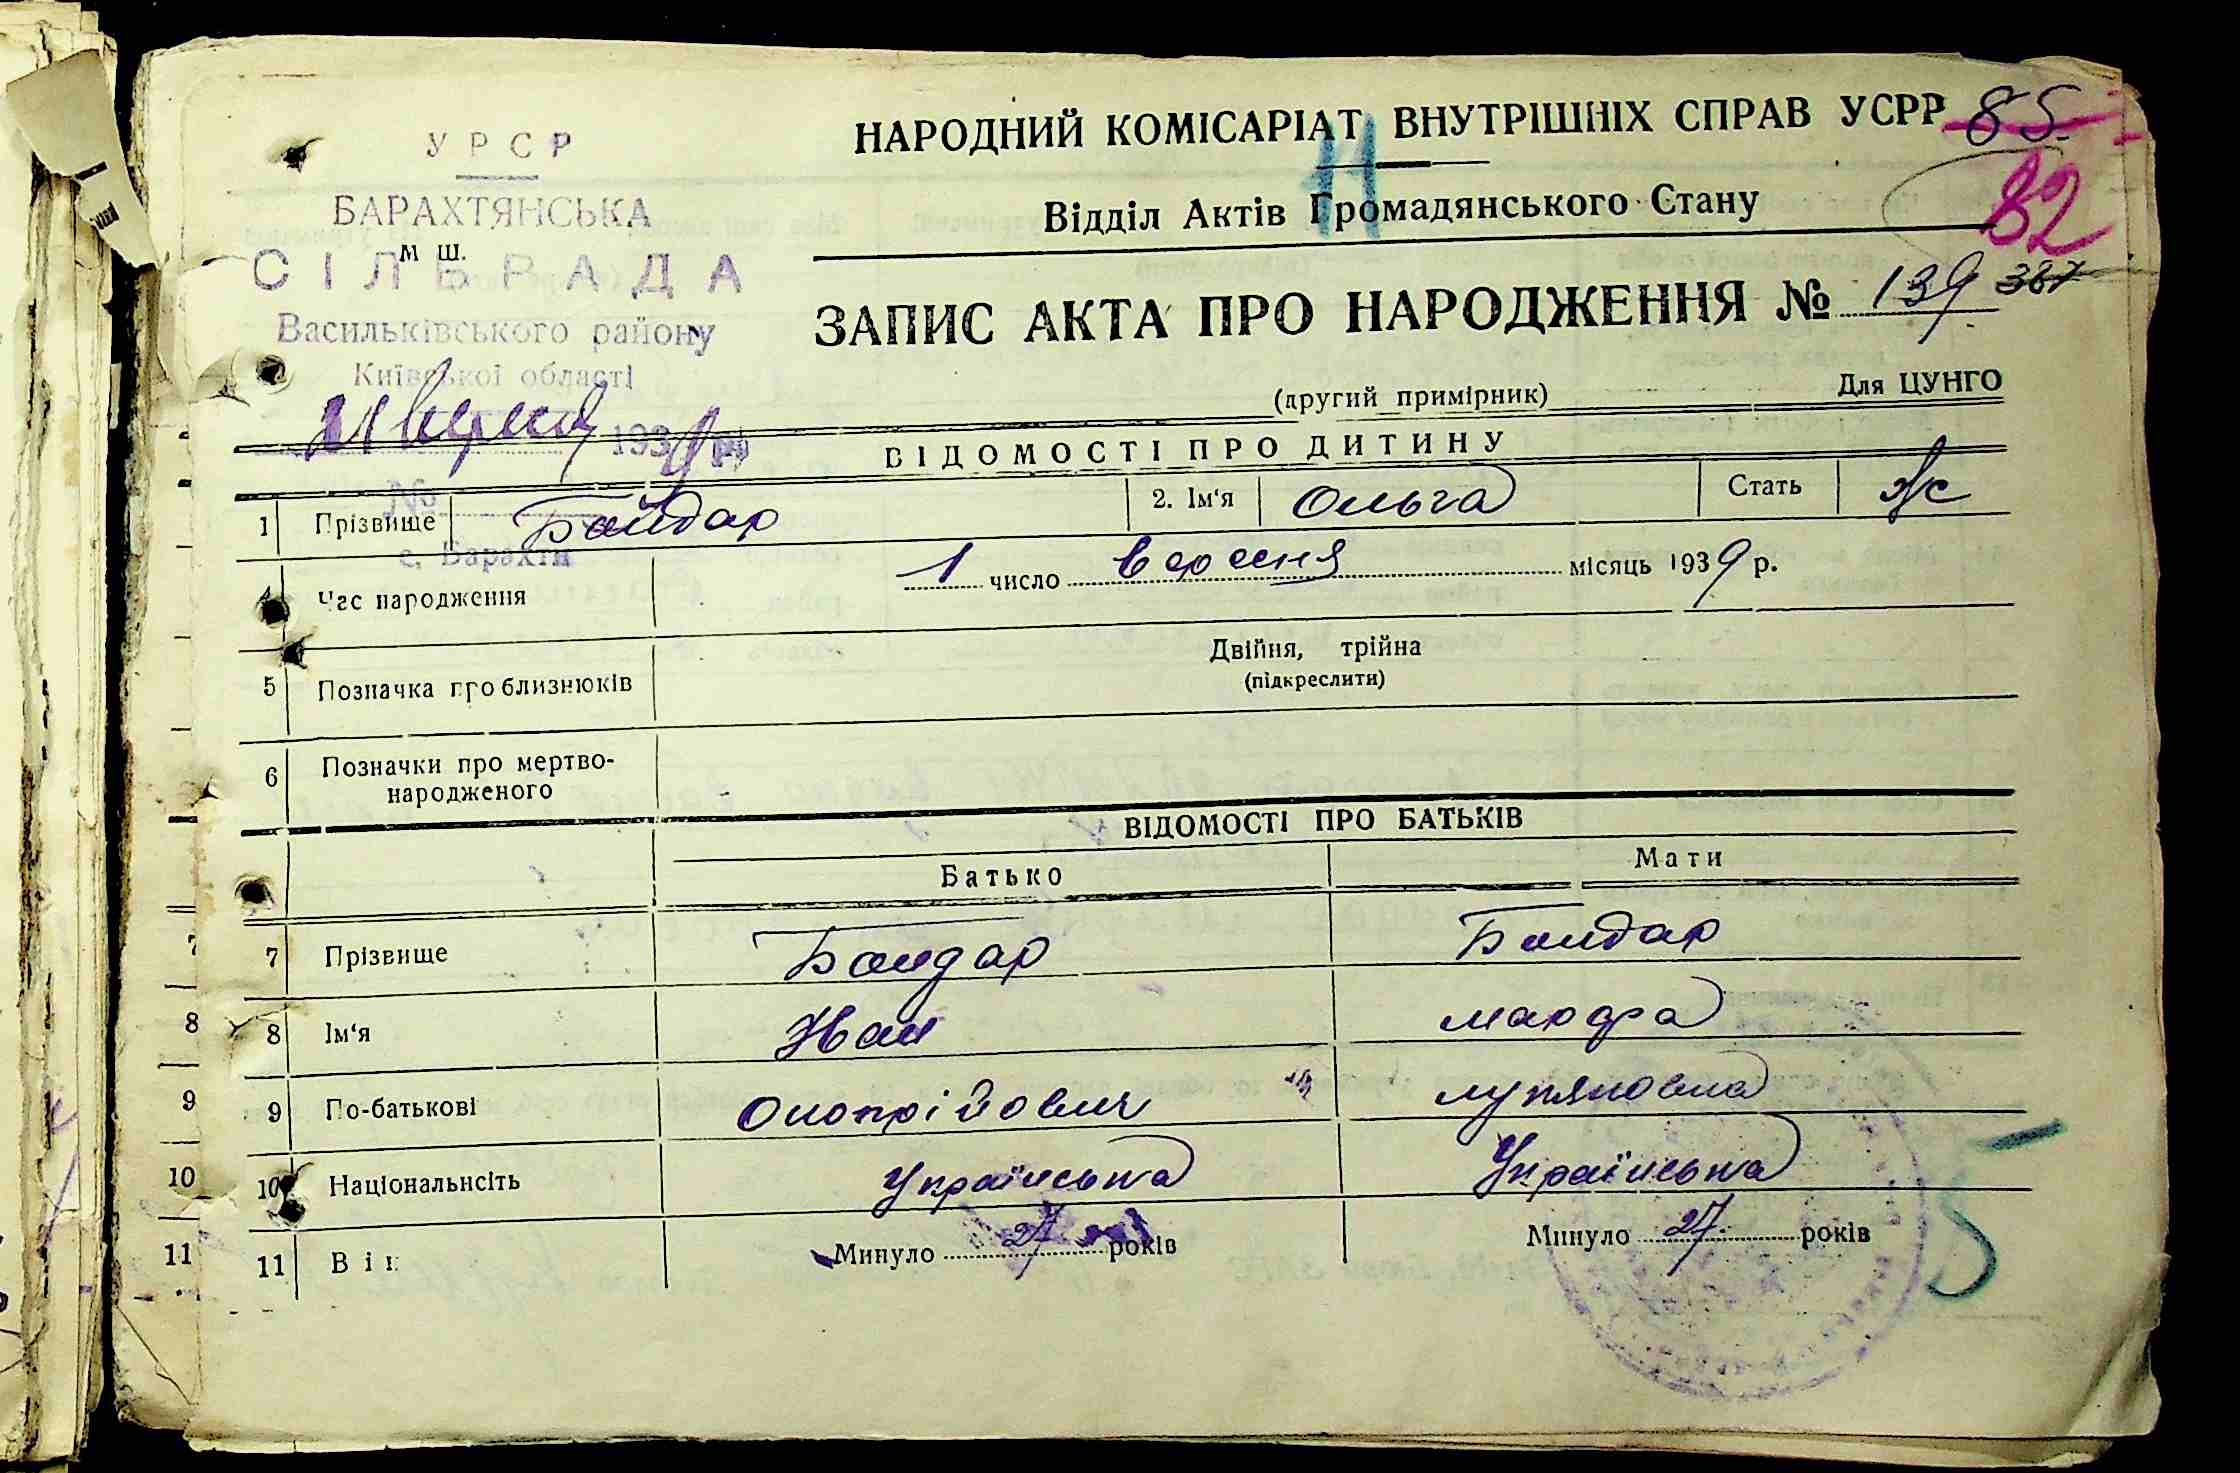 НАРОДНИЙ КОМІСАРІАТ ВНУТРІШНІХ СПРАВ УСРР 85
82
11
УРСР
БАРАХТЯНСЬКА
м ш.
СІЛЬРАДА
Васильківського району
Київської області
193
№
с. Барахти
Відділ Актів Громадянського Стану
ЗАПИС АКТА ПРО НАРОДЖЕННЯ № 139 387
(другий примірник) Для ЦУНГО
ВІДОМОСТІ ПРО ДИТИНУ
1 Прізвище Бондар 2. Ім'я Ольга Стать ж
4 Час народження 1 число вересня місяць 1939 р.
5 Позначка про близнюків Двійня, трійна
(підкреслити)
6 Позначки про мертво-
народженого
ВІДОМОСТІ ПРО БАТЬКІВ
Батько Мати
7 7 Прізвище Бондар Бондар
8 8 Ім'я Иван марфа
9 9 По-батькові Онопрійович лукяновна
10 10 Національнсіть Українська Українська
11 11 Вік Минуло 27 років Минуло 27 років
5